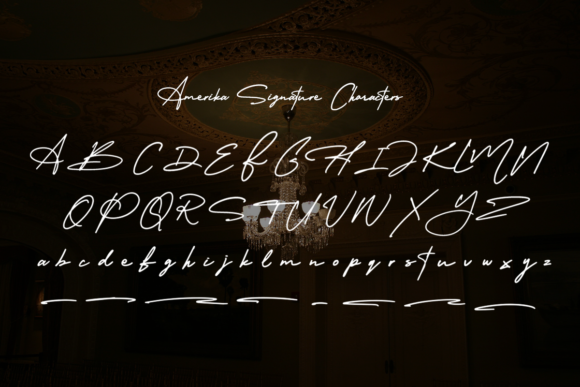 Amerika Signature Characters
A B C D E F G H I J K L M N
O P Q R S T U V W X Y Z
a b c d e f g h i j k l m n o p q r s t u v w x y z